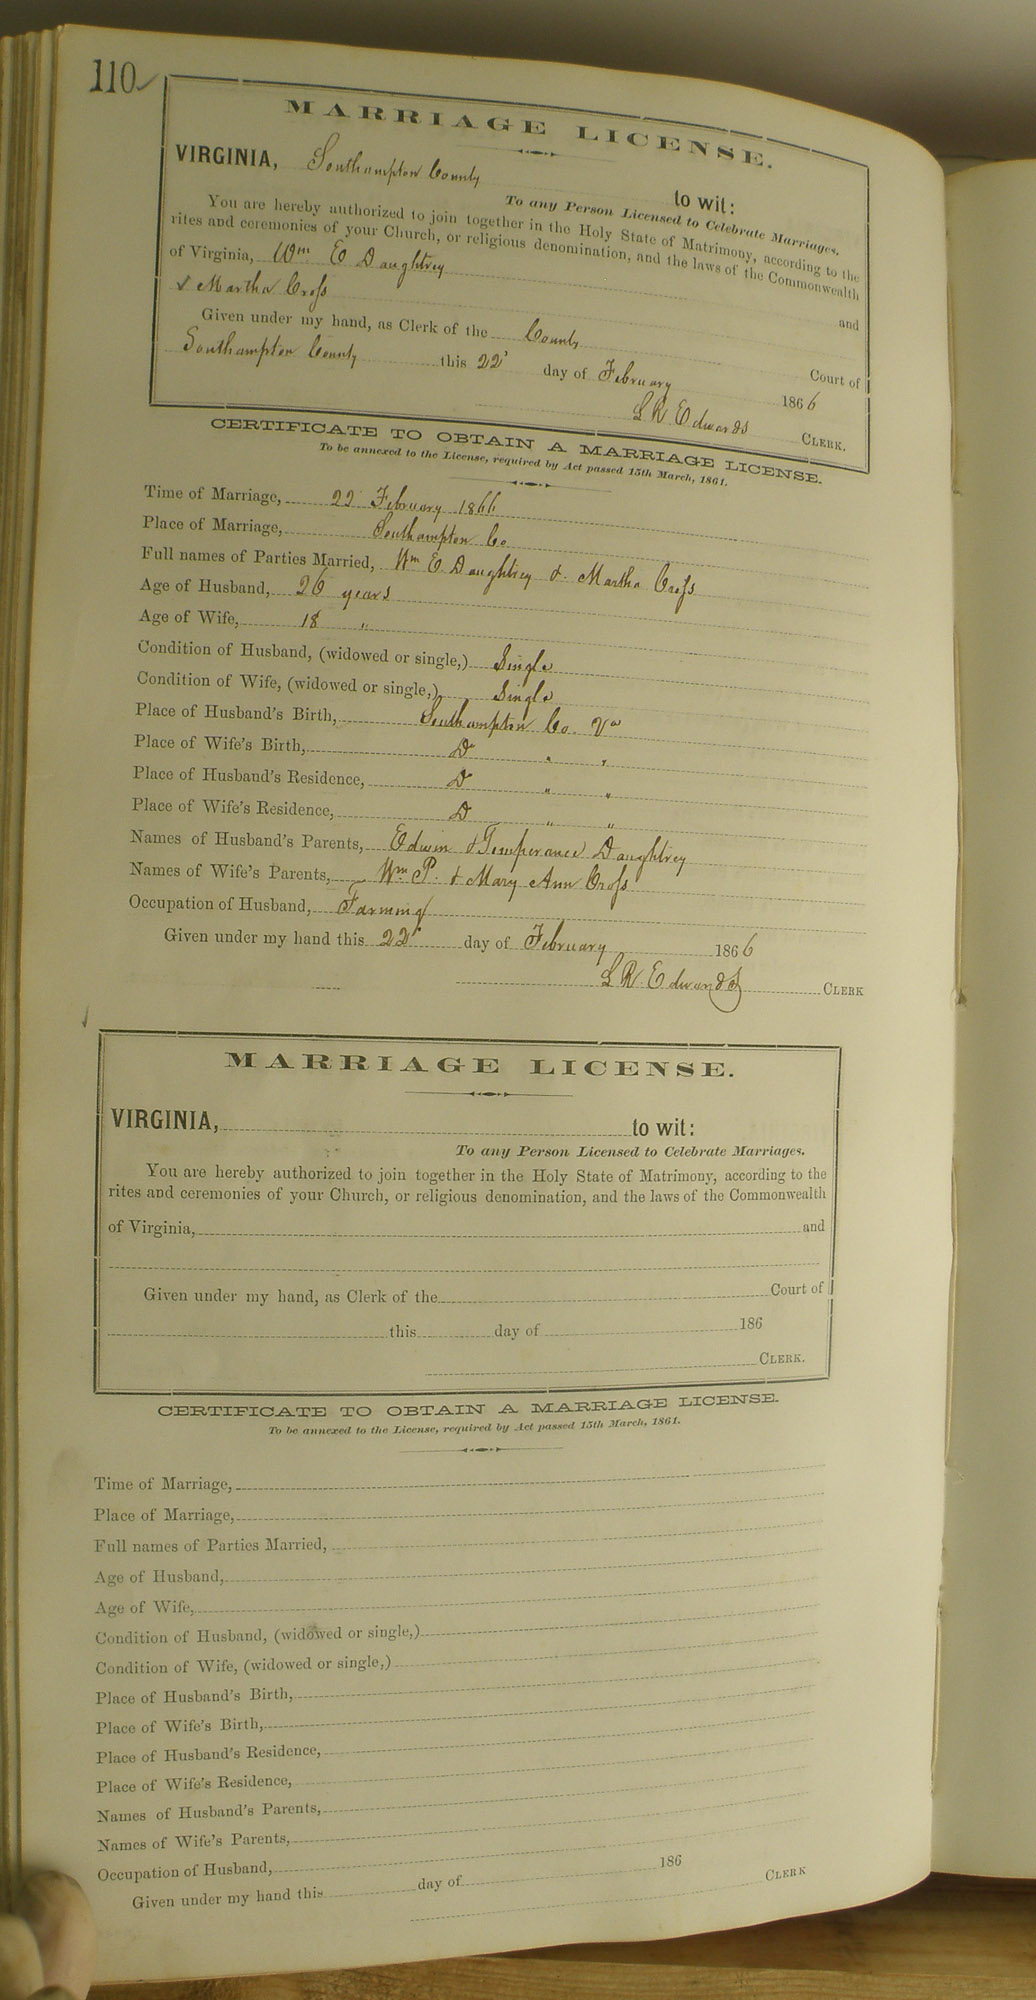 110
MARRIAGE LICENSE.
VIRGINIA, Southampton County to wit:
To any Person Licensed to Celebrate Marriages.
You are hereby authorized to join together in the Holy State of Matrimony, according to the
rites and ceremonies of your Church, or religious denomination, and the laws of the Commonwealth
of Virginia, Wm E Daughtrey and
& Martha Cross
Given under my hand, as Clerk of the County Court of
Southampton County this 22' day of February 1866
L R Edwards CLERK.
CERTIFICATE TO OBTAIN A MARRIAGE LICENSE.
To be annexed to the License, required by Act passed 15th March, 1861.
Time of Marriage, 22 February 1866
Place of Marriage, Southampton Co
Full names of Parties Married, Wm E Daughtrey & Martha Cross
Age of Husband, 26 years
Age of Wife, 18 "
Condition of Husband, (widowed or single,) Single
Condition of Wife, (widowed or single,) Single
Place of Husband's Birth, Southampton Co. Va
Place of Wife's Birth, Do " "
Place of Husband's Residence, Do " "
Place of Wife's Residence, Do " "
Names of Husband's Parents, Edwin & Temperance Daughtrey
Names of Wife's Parents, Wm P. & Mary Ann Cross
Occupation of Husband, Farming
Given under my hand this 22' day of February 1866
L R Edwards CLERK
MARRIAGE LICENSE.
VIRGINIA, to wit:
To any Person Licensed to Celebrate Marriages.
You are hereby authorized to join together in the Holy State of Matrimony, according to the
rites and ceremonies of your Church, or religious denomination, and the laws of the Commonwealth
of Virginia, and
Given under my hand, as Clerk of the Court of
this day of 186
CLERK.
CERTIFICATE TO OBTAIN A MARRIAGE LICENSE.
To be annexed to the License, required by Act passed 15th March, 1861.
Time of Marriage,
Place of Marriage,
Full names of Parties Married,
Age of Husband,
Age of Wife,
Condition of Husband, (widowed or single,)
Condition of Wife, (widowed or single,)
Place of Husband's Birth,
Place of Wife's Birth,
Place of Husband's Residence,
Place of Wife's Residence,
Names of Husband's Parents,
Names of Wife's Parents,
Occupation of Husband,
Given under my hand this day of 186
CLERK